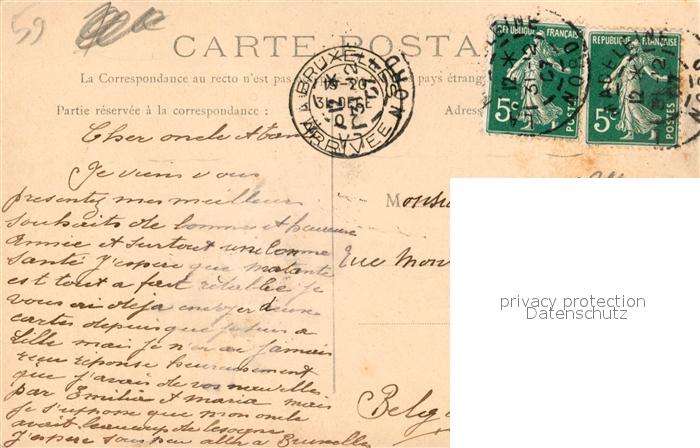 59
CARTE POSTA
La Correspondance au recto n'est pas
pays étrang
Partie réservée à la correspondance :
Adres
BRUXELLES
ARRIVÉE
NORD
RÉPUBLIQUE FRANÇAISE
5c
POSTES
RÉPUBLIQUE FRANÇAISE
5c
POSTES
NORD
Cher oncle et tan
Je viens vous
presentez mes meilleurs
souhaits de bonne et heureuse
année et surtout une bonne
santé J'espere que matante
est tout a fait rétablie je
vous ai deja envoyer deux
cartes depuis que je suis a
Lille mais je n'ai au jamais
reçu réponse heureusement
que j'avais de vos nouvelles
par Emilia et maria mais
je suppose que mon oncle
avait beaucoup de besogne
J'espere sous peu aller a Bruxelles
Monsieu
Rue Mon
Belgi
privacy protection
Datenschutz